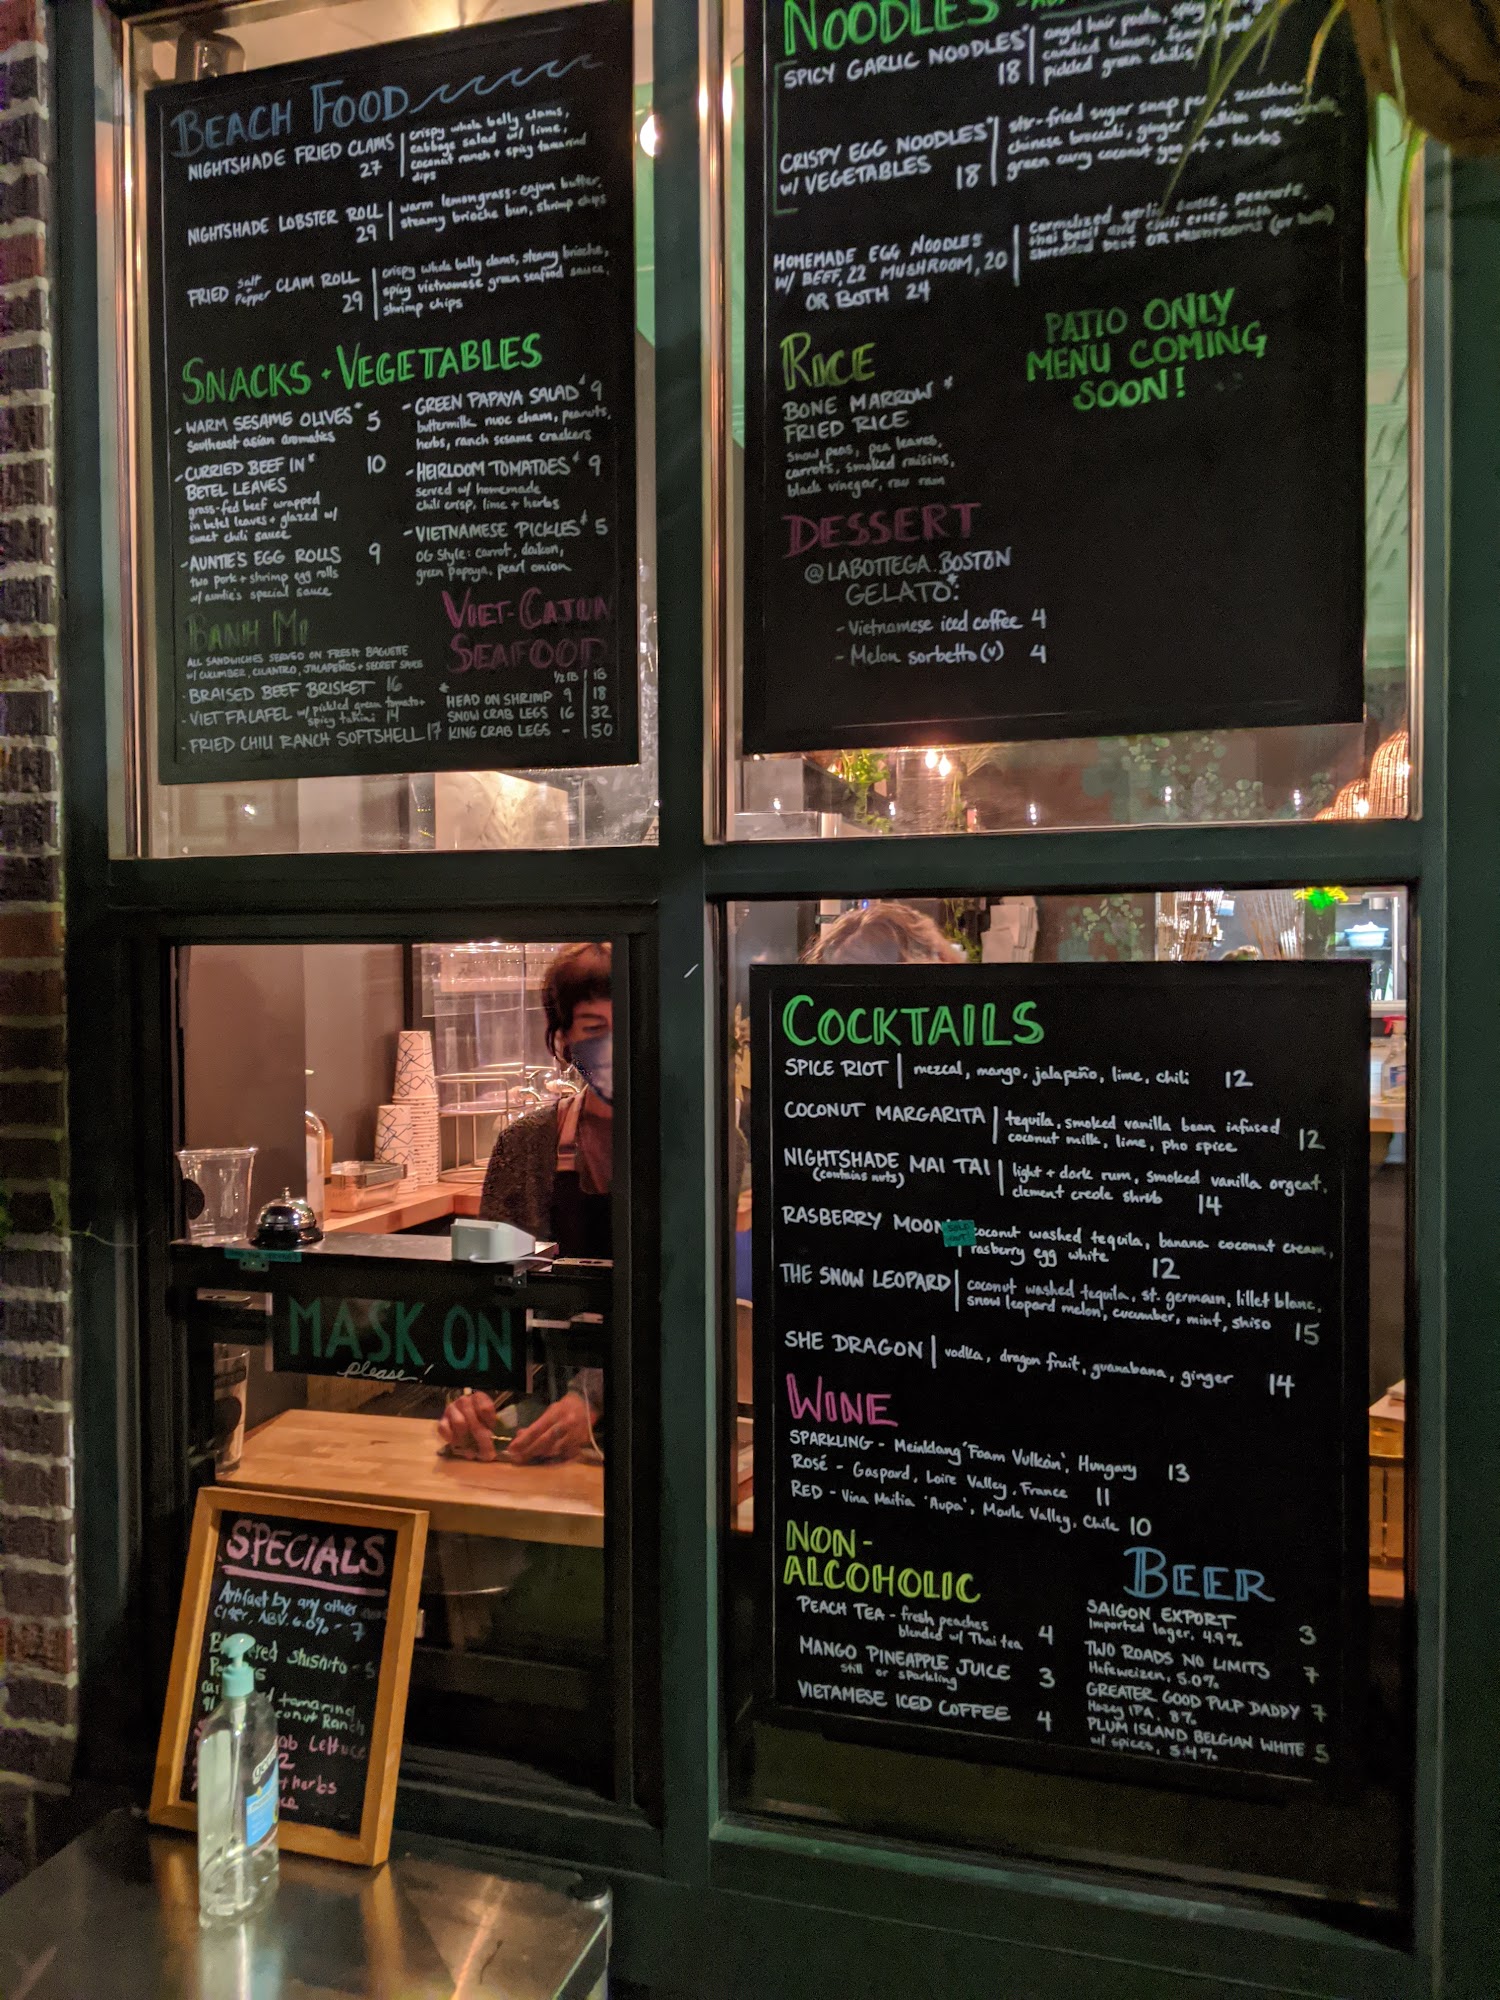 BEACH FOOD
NIGHTSHADE FRIED CLAMS
27
crispy whole belly clams,
cabbage salad w/ lime,
coconut ranch + spicy tamarind
dips
NIGHTSHADE LOBSTER ROLL
29
warm lemongrass-cajun butter,
steamy brioche bun, shrimp chips
FRIED salt + pepper CLAM ROLL
29
crispy whole belly clams, steamy brioche,
spicy vietnamese green seafood sauce,
shrimp chips
SNACKS + VEGETABLES
- WARM SESAME OLIVES* 5
Southeast asian aromatics
- CURRIED BEEF IN* 10
BETEL LEAVES
grass-fed beef wrapped
in betel leaves + glazed w/
sweet chili sauce
- AUNTIE'S EGG ROLLS 9
two pork + shrimp egg rolls
w/ auntie's special sauce
- GREEN PAPAYA SALAD* 9
buttermilk nuoc cham, peanuts,
herbs, ranch sesame crackers
- HEIRLOOM TOMATOES* 9
served w/ homemade
chili crisp, lime + herbs
- VIETNAMESE PICKLES* 5
OG Style: carrot, daikon,
green papaya, pearl onion
BANH MI
ALL SANDWICHES SERVED ON FRESH BAGUETTE
w/ CUCUMBER, CILANTRO, JALAPEÑOS + SECRET SAUCE
- BRAISED BEEF BRISKET 16
- VIET FALAFEL w/ pickled green tomato +
spicy tahini 14
- FRIED CHILI RANCH SOFTSHELL 17
VIET-CAJUN
SEAFOOD
1/2 LB | LB
* HEAD ON SHRIMP 9 | 18
SNOW CRAB LEGS 16 | 32
KING CRAB LEGS - | 50
NOODLES
SPICY GARLIC NOODLES*
18
angel hair pasta, spicy
candied lemon,
pickled green chilis
CRISPY EGG NOODLES*
w/ VEGETABLES 18
stir-fried sugar snap pea, zucchini
chinese broccoli, ginger scallion vinaigrette,
green curry coconut yogurt + herbs
HOMEMADE EGG NOODLES
W/ BEEF, 22 MUSHROOM, 20
OR BOTH 24
Carmelized garlic sauce, peanuts,
thai basil and chili crisp with
shredded beef OR Mushrooms (or both)
RICE
BONE MARROW *
FRIED RICE
snow peas, pea leaves,
carrots, smoked raisins,
black vinegar, rau ram
PATIO ONLY
MENU COMING
SOON!
DESSERT
@LABOTTEGA.BOSTON
GELATO*:
- Vietnamese iced coffee 4
- Melon sorbetto (v) 4
COCKTAILS
SPICE RIOT | mezcal, mango, jalapeño, lime, chili 12
COCONUT MARGARITA | tequila, smoked vanilla bean infused
coconut milk, lime, pho spice 12
NIGHTSHADE MAI TAI
(contains nuts)
light + dark rum, smoked vanilla orgeat,
clement creole shrub 14
RASBERRY MOON
SOLD
OUT
coconut washed tequila, banana coconut cream,
rasberry egg white 12
THE SNOW LEOPARD | coconut washed tequila, st. germain, lillet blanc,
snow leopard melon, cucumber, mint, shiso 15
SHE DRAGON | vodka, dragon fruit, guanabana, ginger 14
WINE
SPARKLING - Meinklang 'Foam Vulkán', Hungary 13
ROSÉ - Gaspard, Loire Valley, France 11
RED - Vina Maitia 'Aupa', Maule Valley, Chile 10
NON-
ALCOHOLIC
PEACH TEA - fresh peaches
blended w/ Thai tea 4
MANGO PINEAPPLE JUICE 3
still or sparkling
VIETAMESE ICED COFFEE 4
BEER
SAIGON EXPORT
Imported lager, 4.9% 3
TWO ROADS NO LIMITS 7
Hefeweizen, 5.0%
GREATER GOOD PULP DADDY 7
Hazy IPA, 8%
PLUM ISLAND BELGIAN WHITE 5
w/ spices, 5.4%
MASK ON
please!
SPECIALS
Artifact by any other
Cider, ABV. 6.0% - 7
shishito - 5
tamarind
Ranch
Lettuce
2
+ herbs